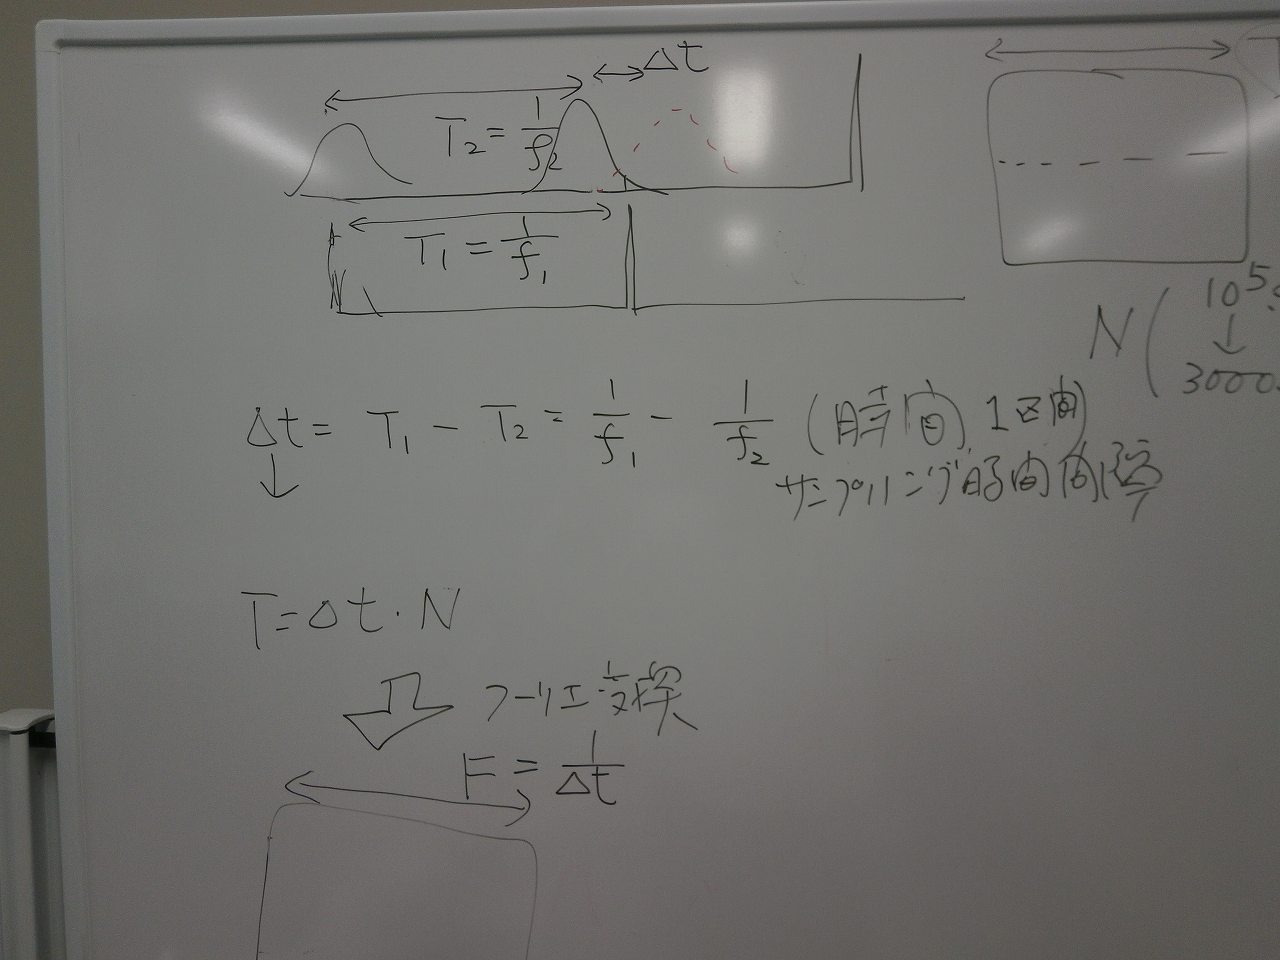 Δt
T₂ = 1/f₂
T₁ = 1/f₁
N(10⁵
↓
3000
Δt = T₁ - T₂ = 1/f₁ - 1/f₂ (時間
サンプリング時間間隔
↓
T = Δt・N
フーリエ変換
F = 1/Δt